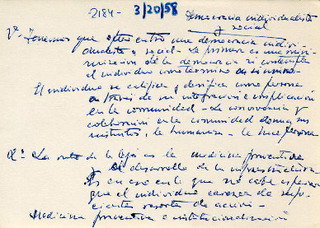 2184- 3/20/58
Democracia individualista
y social
1ª Tenemos que entre una democracia indivi-
dualista y social - La primera es una
de la democracia si contempla
el individuo como termino de si mismo
El individuo se califica y clasifica como persona
a través de su integración e implicación
en la comunidad - La convivencia y
colaboración en la comunidad doma sus
instintos, le humaniza - le hace persona
2ª: La ruta de la lepra es la medicina preventiva
y el desarrollo de la
Es en eso en lo que no cabe esperar
que el individuo carezca de sufi-
ciente resorte de acción -
Medicina preventiva e institucionalización